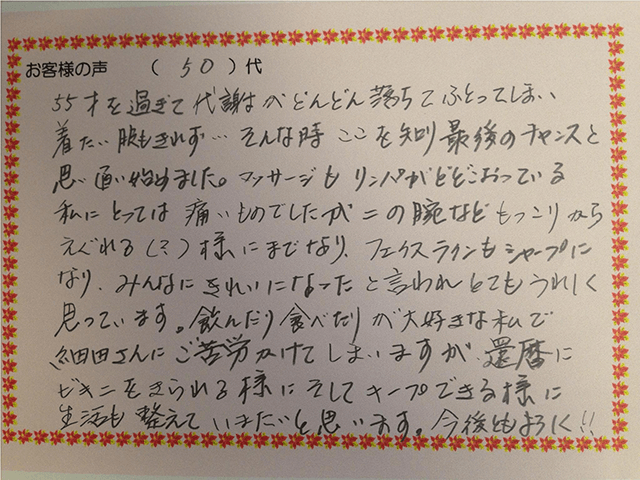 お客様の声 （50）代
55才を過ぎて代謝がどんどん落ちてふとってしまい
着たい服もきれず…そんな時ここを知り最後のチャンスと
思い通い始めました。マッサージもリンパがとどこおっている
私にとっては痛いものでしたが二の腕などもっこりから
えぐれる（？）様にまでなり、フェイスラインもシャープに
なり、みんなにきれいになったと言われとてもうれしく
思っています。飲んだり食べたりが大好きな私で
細田さんにご苦労かけてしまいますが、還暦に
ビキニをきられる様にそしてキープできる様に
生活も整えていきたいと思います。今後ともよろしく!!